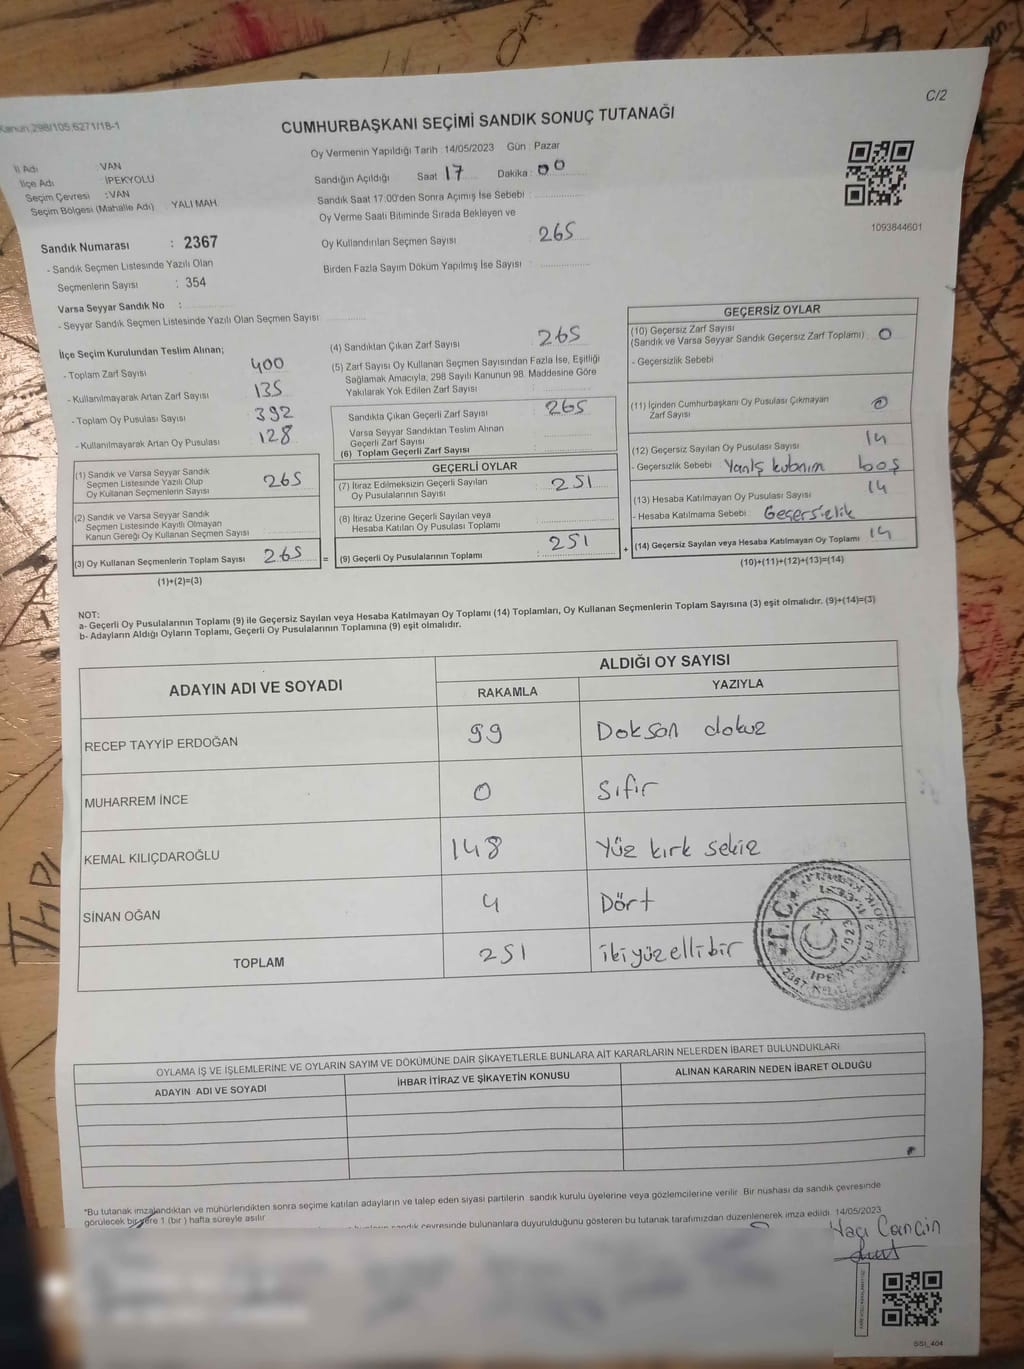 C/2
Kanun:298/105;6271/18-1
CUMHURBAŞKANI SEÇİMİ SANDIK SONUÇ TUTANAĞI
Oy Vermenin Yapıldığı Tarih : 14/05/2023 Gün : Pazar
İl Adı : VAN
İlçe Adı : İPEKYOLU
Seçim Çevresi : VAN
Seçim Bölgesi (Mahalle Adı) YALI MAH.
Sandığın Açıldığı Saat 17 Dakika : 00
Sandık Saat 17:00'den Sonra Açımış İse Sebebi :
Oy Verme Saati Bitiminde Sırada Bekleyen ve
Oy Kullandırılan Seçmen Sayısı : 265
Birden Fazla Sayım Döküm Yapılmış İse Sayısı :
1093844601
Sandık Numarası : 2367
- Sandık Seçmen Listesinde Yazılı Olan
Seçmenlerin Sayısı : 354
Varsa Seyyar Sandık No :
- Seyyar Sandık Seçmen Listesinde Yazılı Olan Seçmen Sayısı:
İlçe Seçim Kurulundan Teslim Alınan;
- Toplam Zarf Sayısı 400
- Kullanılmayarak Artan Zarf Sayısı 135
- Toplam Oy Pusulası Sayısı 392
- Kullanılmayarak Artan Oy Pusulası 128
(1) Sandık ve Varsa Seyyar Sandık
Seçmen Listesinde Yazılı Olup
Oy Kullanan Seçmenlerin Sayısı 265
(2) Sandık ve Varsa Seyyar Sandık
Seçmen Listesinde Kayıtlı Olmayan
Kanun Gereği Oy Kullanan Seçmen Sayısı
(3) Oy Kullanan Seçmenlerin Toplam Sayısı 265 =
(1)+(2)=(3)
(4) Sandıktan Çıkan Zarf Sayısı 265
(5) Zarf Sayısı Oy Kullanan Seçmen Sayısından Fazla İse, Eşitliği
Sağlamak Amacıyla, 298 Sayılı Kanunun 98. Maddesine Göre
Yakılarak Yok Edilen Zarf Sayısı :
Sandıkta Çıkan Geçerli Zarf Sayısı : 265
Varsa Seyyar Sandıktan Teslim Alınan
Geçerli Zarf Sayısı :
(6) Toplam Geçerli Zarf Sayısı
GEÇERLİ OYLAR
(7) İtiraz Edilmeksizin Geçerli Sayılan
Oy Pusulalarının Sayısı : 251
(8) İtiraz Üzerine Geçerli Sayılan veya
Hesaba Katılan Oy Pusulası Toplamı :
(9) Geçerli Oy Pusulalarının Toplamı : 251 +
GEÇERSİZ OYLAR
(10) Geçersiz Zarf Sayısı
(Sandık ve Varsa Seyyar Sandık Geçersiz Zarf Toplamı) : 0
- Geçersizlik Sebebi :
(11) İçinden Cumhurbaşkanı Oy Pusulası Çıkmayan
Zarf Sayısı : 0
(12) Geçersiz Sayılan Oy Pusulası Sayısı 14
- Geçersizlik Sebebi : Yanlış kullanım boş
(13) Hesaba Katılmayan Oy Pusulası Sayısı 14
- Hesaba Katılmama Sebebi : Geçersizlik
(14) Geçersiz Sayılan veya Hesaba Katılmayan Oy Toplamı : 14
(10)+(11)+(12)+(13)=(14)
NOT:
a- Geçerli Oy Pusulalarının Toplamı (9) ile Geçersiz Sayılan veya Hesaba Katılmayan Oy Toplamı (14) Toplamları, Oy Kullanan Seçmenlerin Toplam Sayısına (3) eşit olmalıdır. (9)+(14)=(3)
b- Adayların Aldığı Oyların Toplamı, Geçerli Oy Pusulalarının Toplamına (9) eşit olmalıdır.
ADAYIN ADI VE SOYADI
ALDIĞI OY SAYISI
RAKAMLA YAZIYLA
RECEP TAYYİP ERDOĞAN 99 Doksan dokuz
MUHARREM İNCE 0 Sıfır
KEMAL KILIÇDAROĞLU 148 Yüz kırk sekiz
SİNAN OĞAN 4 Dört
TOPLAM 251 ikiyüzellibir
T.C.
OYLAMA İŞ VE İŞLEMLERİNE VE OYLARIN SAYIM VE DÖKÜMÜNE DAİR ŞİKAYETLERLE BUNLARA AİT KARARLARIN NELERDEN İBARET BULUNDUKLARI
ADAYIN ADI VE SOYADI İHBAR İTİRAZ VE ŞİKAYETİN KONUSU ALINAN KARARIN NEDEN İBARET OLDUĞU
*Bu tutanak imzalandıktan ve mühürlendikten sonra seçime katılan adayların ve talep eden siyasi partilerin sandık kurulu üyelerine veya gözlemcilerine verilir. Bir nüshası da sandık çevresinde
görülecek bir yere 1 (bir) hafta süreyle asılır.
sandık çevresinde bulunanlara duyurulduğunu gösteren bu tutanak tarafımızdan düzenlenerek imza edildi. 14/05/2023
SSI_404